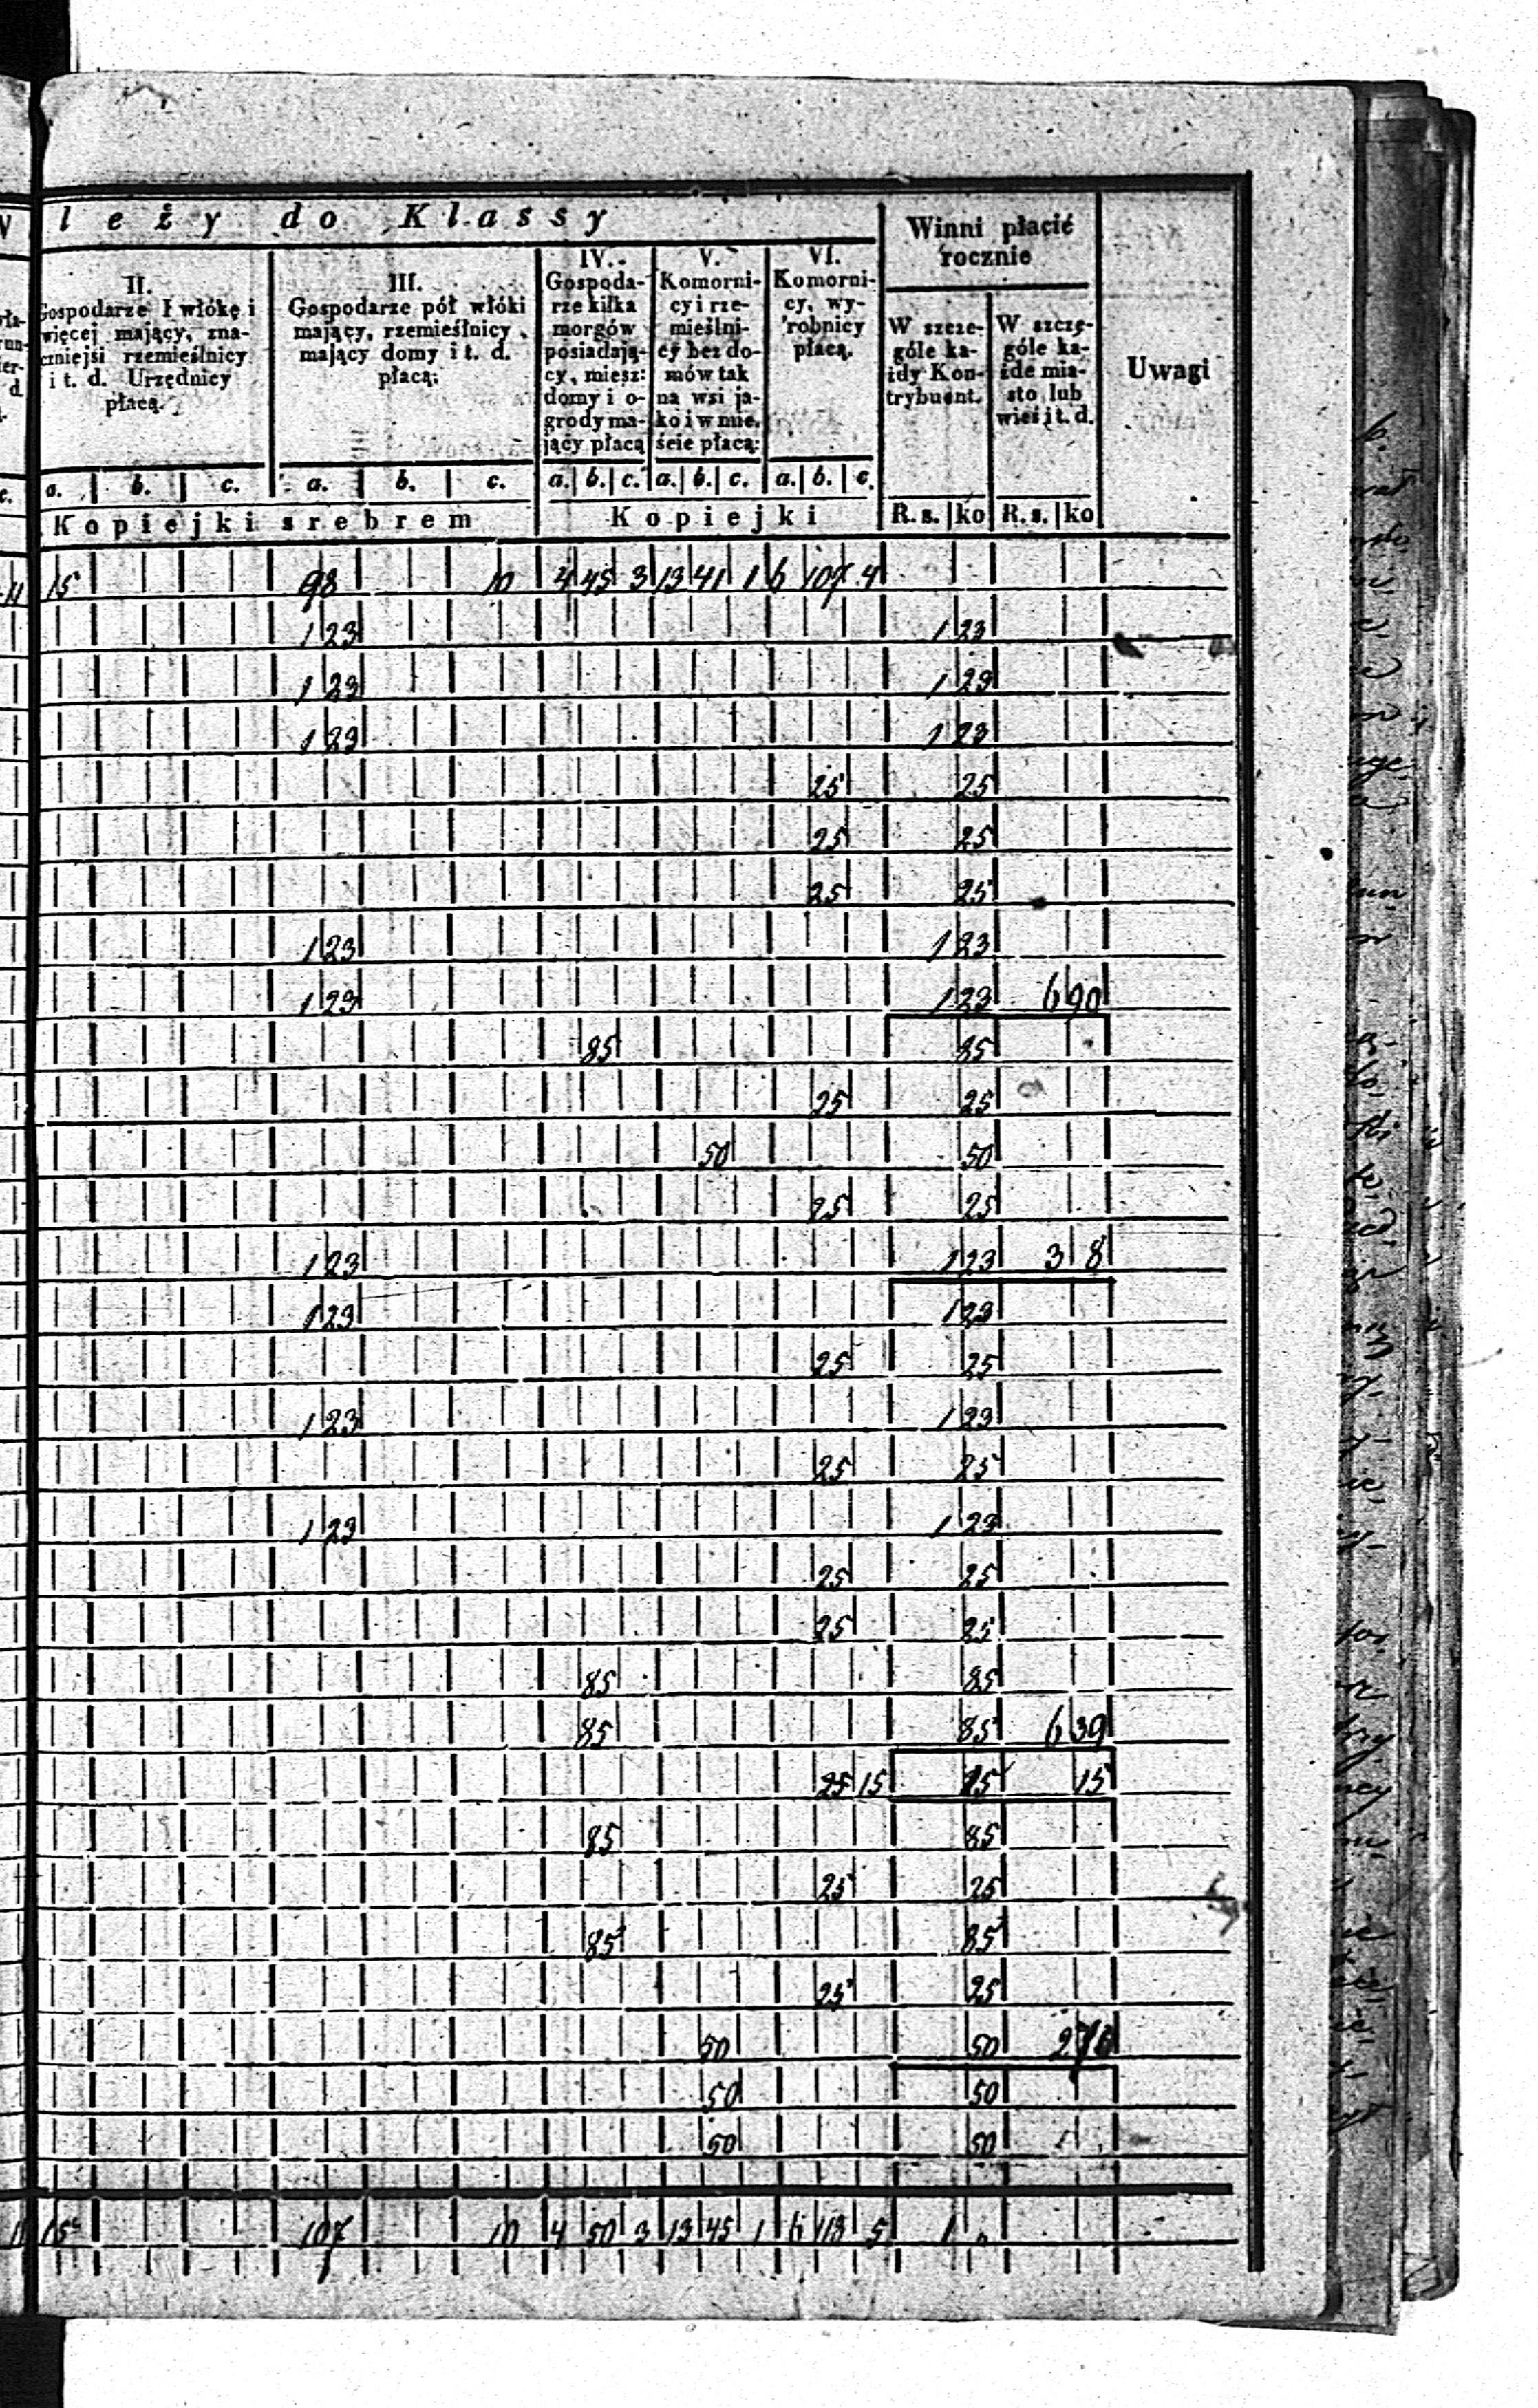 leży do Klassy
Winni płacić rocznie
Uwagi
II. Gospodarze I włókę i więcej mający, znaczniejsi rzemieślnicy i t. d. Urzędnicy płacą.
III. Gospodarze pół włóki mający, rzemieślnicy mający domy i t. d. płacą:
IV. Gospodarze kilka morgów posiadający, miesz: domy i ogrody mający płacą
V. Komornicy i rzemieślnicy bez domów tak na wsi jako i w mieście płacą:
VI. Komornicy, wyrobnicy płacą.
W szczególe każdy Kontrybuent.
W szczególe każde miasto lub wieś i t. d.
a. b. c. a. b. c. a. b. c. a. b. c. a. b. c.
Kopiejki srebrem Kopiejki R. s. ko R. s. ko
11 15 98 10 4 45 3 13 41 1 6 107 4
1 23 1 23
1 23 1 23
1 23 1 23
25 25
25 25
25 25
1 23 1 23
1 23 1 23 6 90
85 85
25 25
50 50
25 25
1 23 1 23 3 8
1 23 1 23
25 25
1 23 1 23
25 25
1 23 1 23
25 25
25 25
85 85
85 85 6 39
25 15 15 15
85 85
25 25
85 85
25 25
50 50 2 70
50 50
50 50
15 107 10 4 50 3 13 45 1 6 5